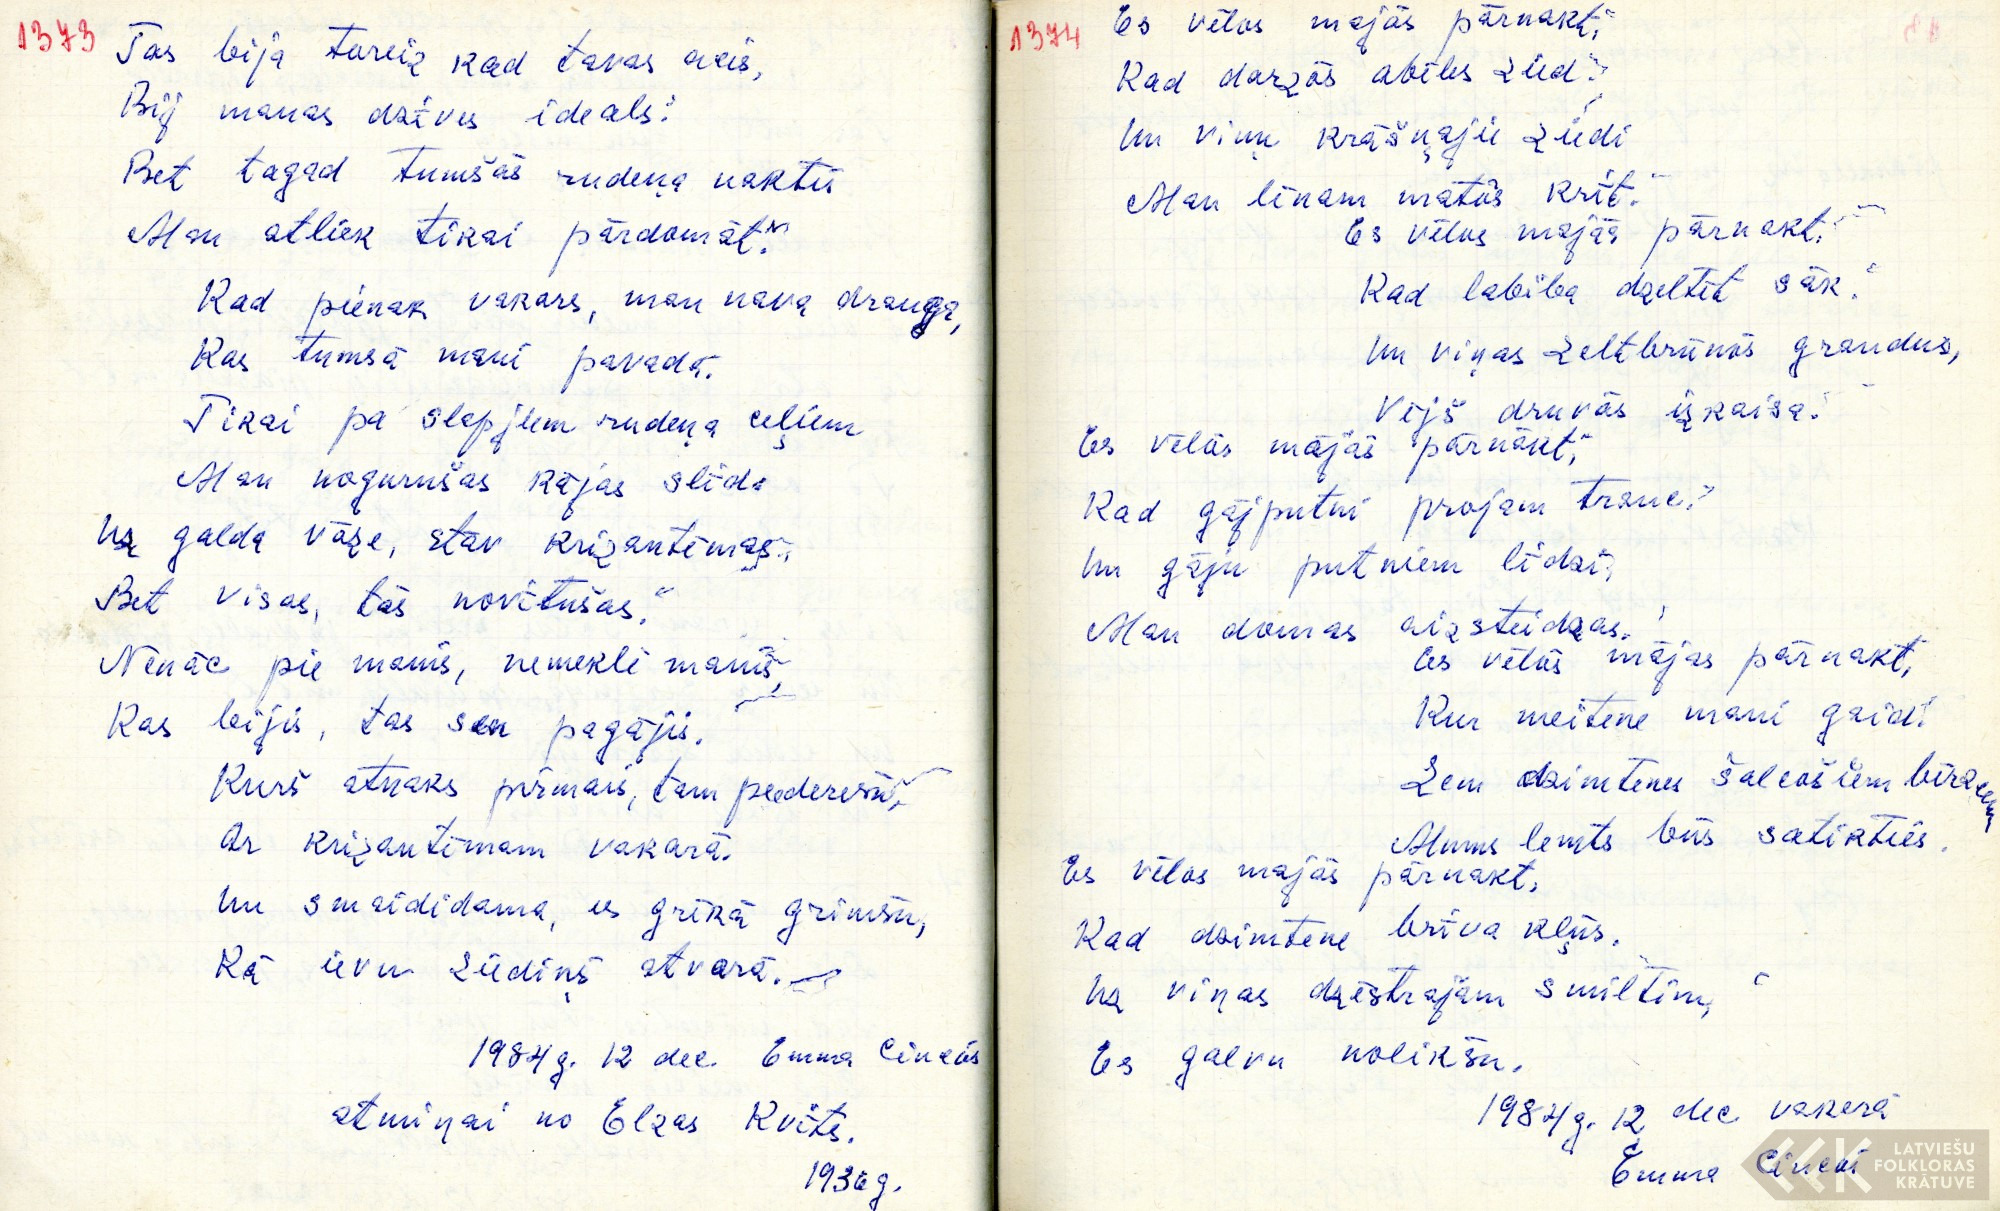 1373
Tas bija toreiz kad tavas acis,
Bij manas dzīves ideals.
Bet tagad tumšās rudeņa naktīs
Man atliek tikai pārdomāt.
Kad pienak vakars, man nava drauga,
Kas tumsā mani pavada.
Tikai pa slapjiem rudeņa ceļiem
Man nogurušas kājas slīd.
Uz galda vāze, stāv krizantēmas,
Bet visas, tās novītušas.
Nenāc pie manis, nemeklē manis,
Kas bijis, tas sen pagājis.
Kurš atnāks pirmais, tam piederēšu,
Ar krizantēmam vakarā.
Un smaidīdama, es grēkā grimšu,
Kā ievu ziediņš atvarā.
1984g. 12 dec. Emma Cincās
atmiņai no Elzas Kvīts.
1936g.
1374
Es vēlos majās pārnakt,
Kad darzās abeles zied,
Un viņu krāšņajie ziedi
Man linam matos krīt.
Es vēlos majās pārnakt,
Kad labība dzeltēt sāk.
Un viņas zeltbrūnos graudus,
Vējš druvās izkaisa.
Es vēlos mājās pārnākt,
Kad gājputni projam trauc.
Un gāju putniem līdzi,
Man domas aizsteidzas.
Es vēlos mājas pārnakt,
Kur meitene mani gaid.
Zem dzimtenes šalcošiem bērziem
Mums lemts būs satikties.
Es vēlos majās pārnakt,
Kad dzimtene brīva kļūs.
Uz viņas dzestrajām smiltīm,
Es galvu nolikšu.
1984g. 12 dec vakarā
Emma Cincās
LATVIEŠU
FOLKLORAS
KRĀTUVE